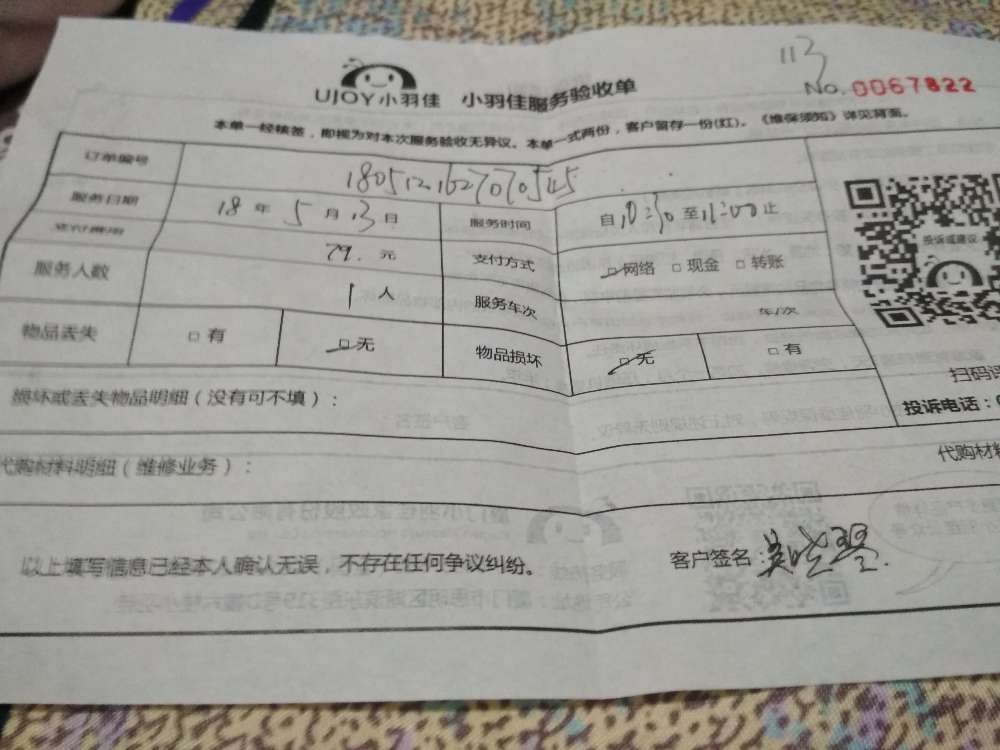 113
No. 0067822
UJOY小羽佳 小羽佳服务验收单
本单一经核签，即视为对本次服务验收无异议。本单一式两份，客户留存一份(红)。《维保须知》详见背面。
订单编号 1805121627070545
服务日期 18 年 5 月 13 日 服务时间 自 10:30 至 11:00 止
79. 元 支付方式 □网络 □现金 □转账
服务人数 1 人 服务车次 车/次
物品丢失 □有 □无 物品损坏 □无 □有
投诉或建议
扫码
投诉电话：
损坏或丢失物品明细（没有可不填）：
代购材料明细（维修业务）： 代购材料
以上填写信息已经本人确认无误，不存在任何争议纠纷。 客户签名：